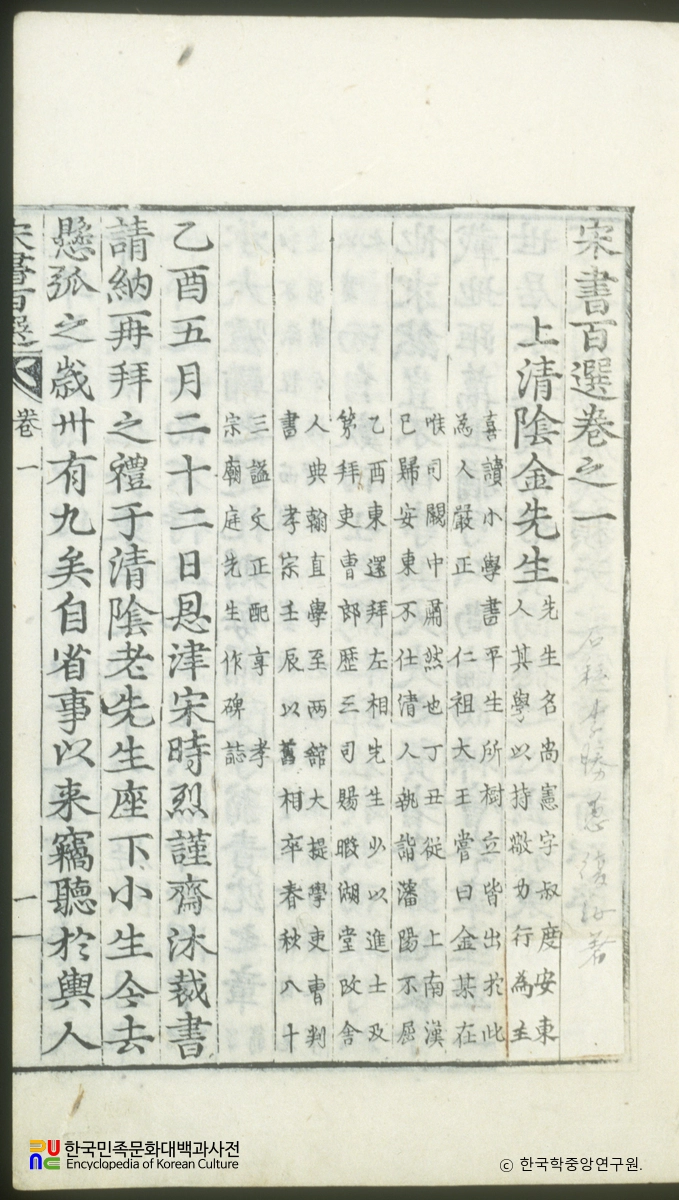 宋書百選卷之一
上清陰金先生
先生名尙憲字叔度安東
人其學以持敬力行為主
喜讀小學書平生所樹立皆出於此
為人嚴正 仁祖大王嘗曰金某在
唯司闕中肅然也丁丑從 上南漢
已歸安東不仕清人執詣瀋陽不屈
乙酉東還拜左相先生少以進士及
第拜吏曹郎歷三司賜暇湖堂政舍
人典翰直學至兩館大提學吏曹判
書 孝宗壬辰以舊相卒春秋八十
三謚文正配享 孝
宗廟庭先生作碑誌
乙酉五月二十二日恩津宋時烈謹齋沐裁書
請納再拜之禮于清陰老先生座下小生今去
懸弧之歲卅有九矣自省事以来竊聽於輿人
宋書百選
卷一
一
한국민족문화대백과사전
Encyclopedia of Korean Culture
© 한국학중앙연구원.